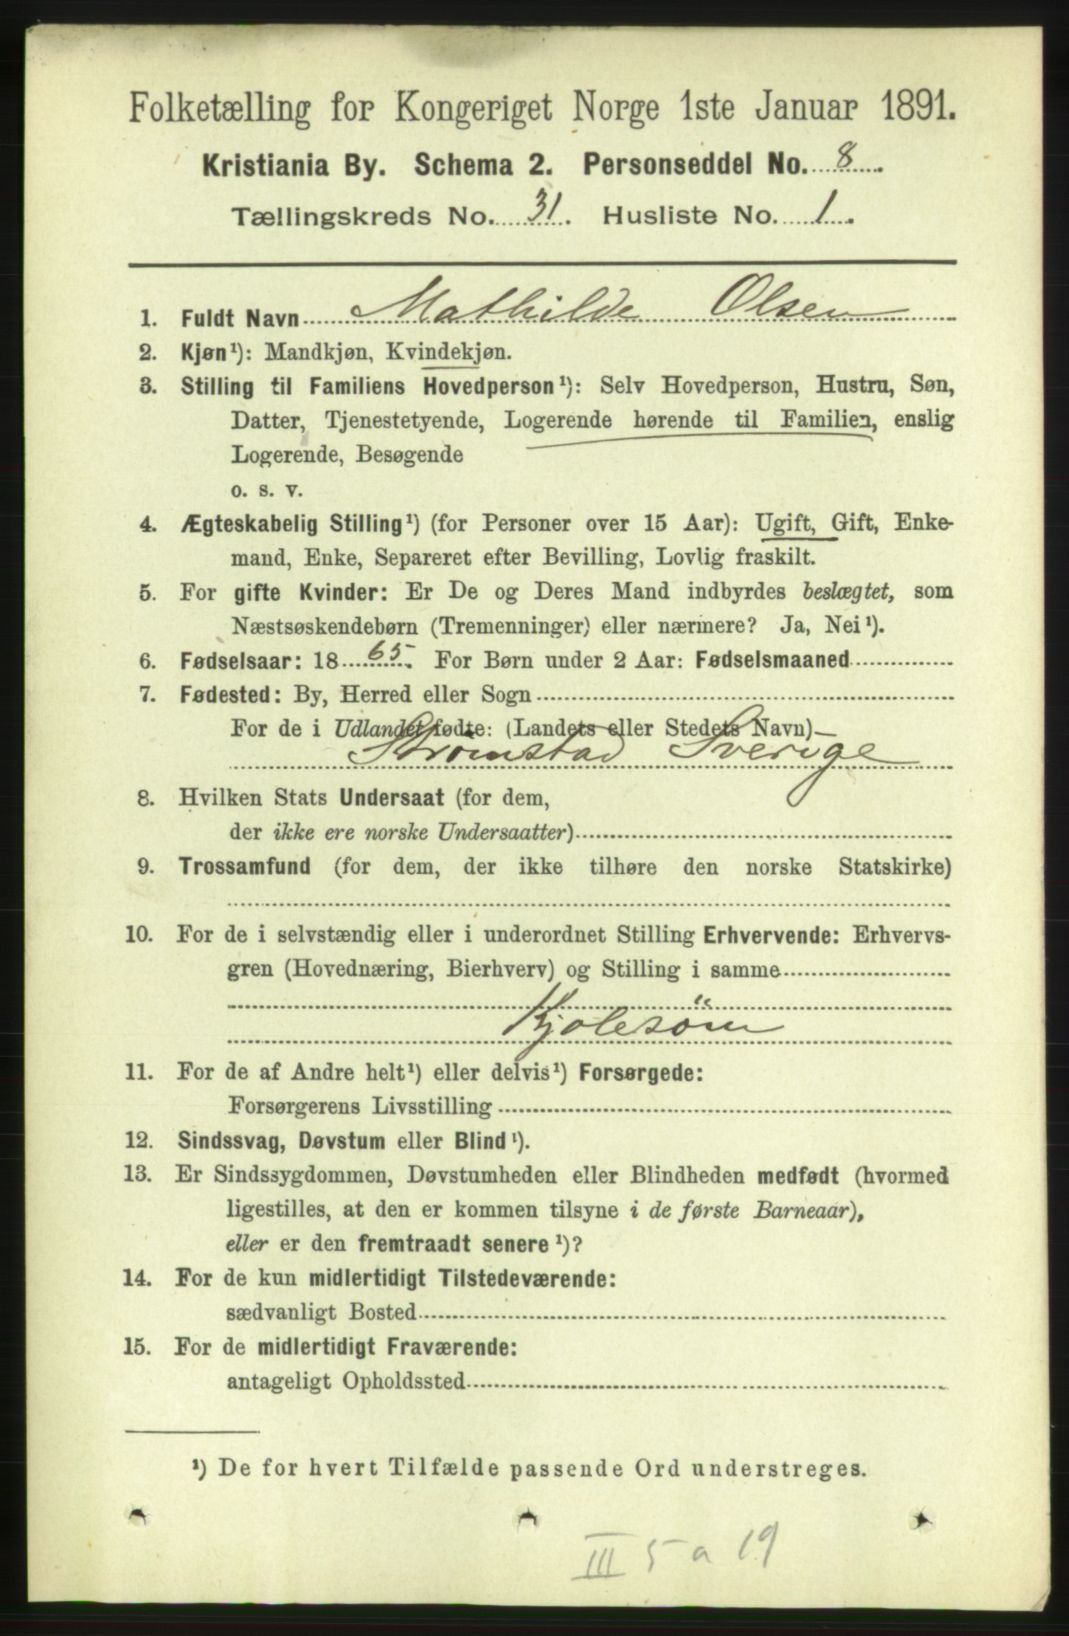 Folketælling for Kongeriget Norge 1ste Januar 1891.
Kristiania By. Schema 2. Personseddel No. 8.
Tællingskreds No. 31. Husliste No. 1.
1. Fuldt Navn Mathilde Olsen
2. Kjøn¹): Mandkjøn, Kvindekjøn.
3. Stilling til Familiens Hovedperson¹): Selv Hovedperson, Hustru, Søn,
Datter, Tjenestetyende, Logerende hørende til Familien, enslig
Logerende, Besøgende
o. s. v.
4. Ægteskabelig Stilling¹) (for Personer over 15 Aar): Ugift, Gift, Enke-
mand, Enke, Separeret efter Bevilling, Lovlig fraskilt.
5. For gifte Kvinder: Er De og Deres Mand indbyrdes beslægtet, som
Næstsøskendebørn (Tremenninger) eller nærmere? Ja, Nei¹).
6. Fødselsaar: 1865. For Børn under 2 Aar: Fødselsmaaned
7. Fødested: By, Herred eller Sogn
For de i Udlandet fødte: (Landets eller Stedets Navn)
Strömstad Sverige
8. Hvilken Stats Undersaat (for dem,
der ikke ere norske Undersaatter)
9. Trossamfund (for dem, der ikke tilhøre den norske Statskirke)
10. For de i selvstændig eller i underordnet Stilling Erhvervende: Erhvervs-
gren (Hovednæring, Bierhverv) og Stilling i samme
Kjolesöm
11. For de af Andre helt¹) eller delvis¹) Forsørgede:
Forsørgerens Livsstilling
12. Sindssvag, Døvstum eller Blind¹).
13. Er Sindssygdommen, Døvstumheden eller Blindheden medfødt (hvormed
ligestilles, at den er kommen tilsyne i de første Barneaar),
eller er den fremtraadt senere¹)?
14. For de kun midlertidigt Tilstedeværende:
sædvanligt Bosted
15. For de midlertidigt Fraværende:
antageligt Opholdssted
¹) De for hvert Tilfælde passende Ord understreges.
III 5 a 19